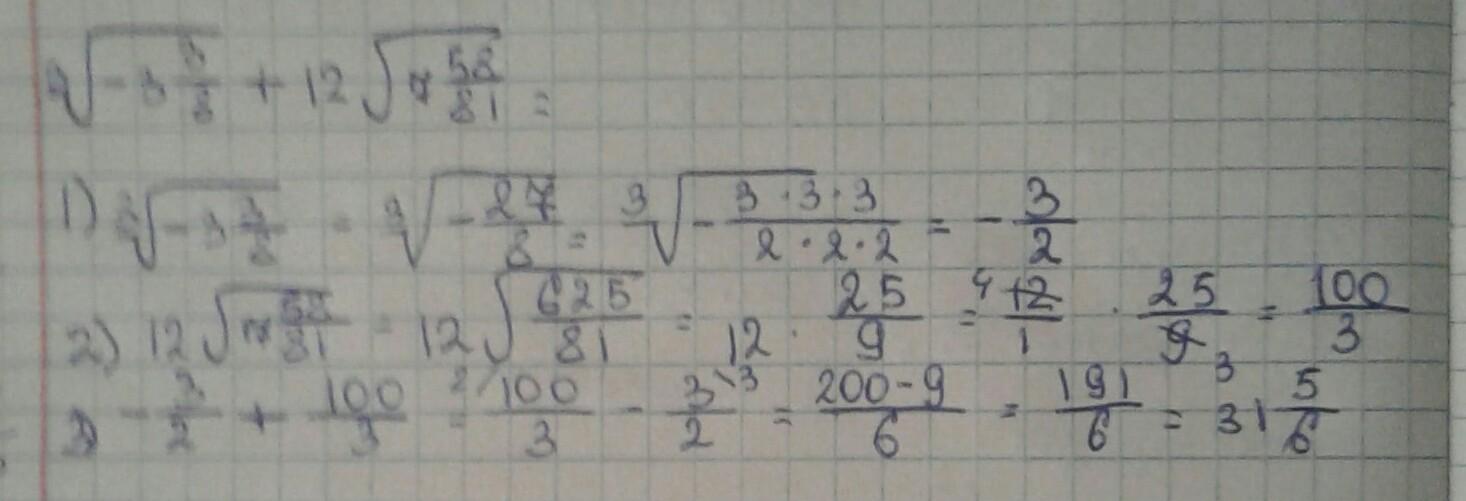 ∛(-3 3/8) + 12√(7 58/81) =
1) ∛(-3 3/8) = ∛(-27/8) = ∛(-(3·3·3)/(2·2·2)) = -3/2
2) 12√(7 58/81) = 12√(625/81) = 12 · 25/9 = ⁴12/1 · 25/9₃ = 100/3
3) -3/2 + 100/3 = ²⁄100/3 - 3\³/2 = (200-9)/6 = 191/6 = 31 5/6